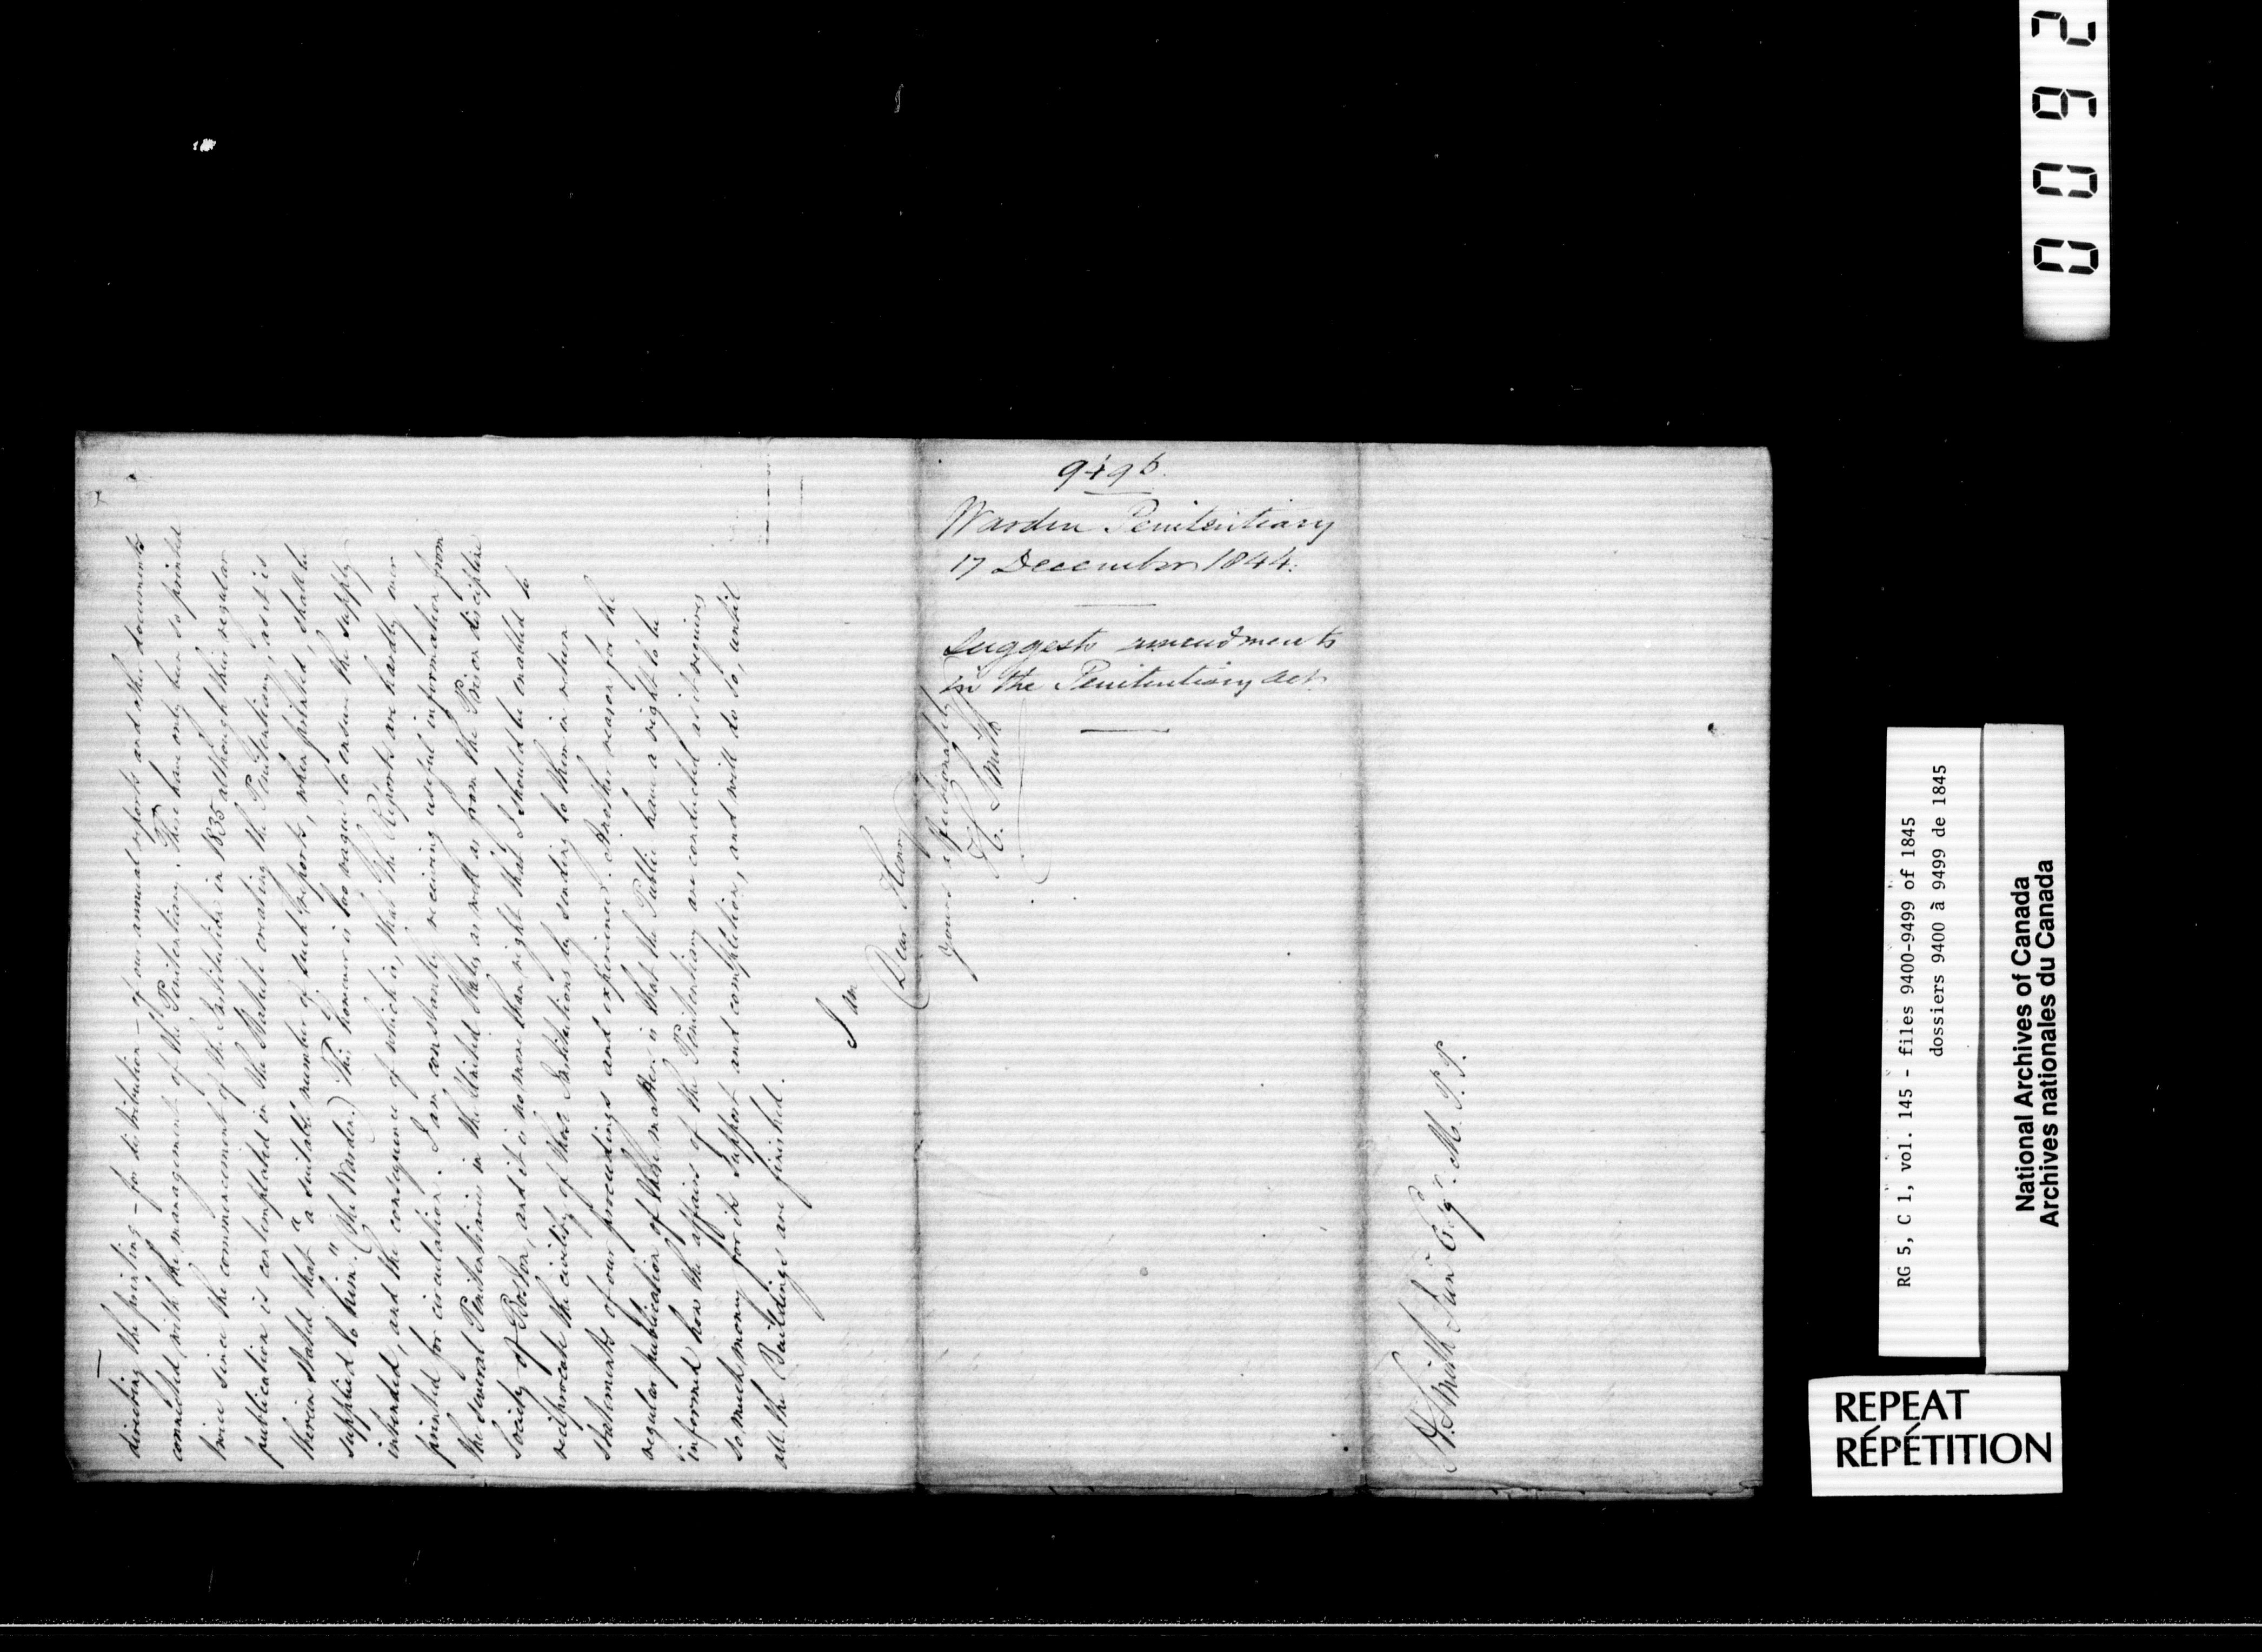 directing the printing – for distribution – of our annual reports and other documents
connected with the management of the Penitentiary. These have only been so printed
twice since the commencement of the Institution in 1835 although their regular
publication is contemplated in the Statute creating the Penitentiary, as it is
therein stated that "a suitable number of such reports, when printed, shall be
supplied to him". (the Warden.) This however is too vague to ensure the supply
intended, and the consequence of which is, that the Reports are hardly ever
printed for circulation. I am constantly receiving useful information from
the several Penitentiaries in the United States as well as from the Prison discipline
Society of Boston, and it is no more than right that I should be enabled to
reciprocate the civility of those Institutions by sending to them in return
statements of our proceedings and experience. Another reason for the
regular publication of these matters is that the Public have a right to be
informed how the affairs of the Penitentiary are conducted as it requires
so much money for its support and completion, and will do so, until
all the Buildings are finished.
I am
Dear Henry
yours affectionately
H. Smith
949
Warden Penitentiary
17 December 1844.
Suggests amendments
in the Penitentiary act
H. Smith Junr Esqr M.P.P.
2600
RG 5, C 1, vol. 145 - files 9400-9499 of 1845
dossiers 9400 à 9499 de 1845
National Archives of Canada
Archives nationales du Canada
REPEAT
RÉPÉTITION